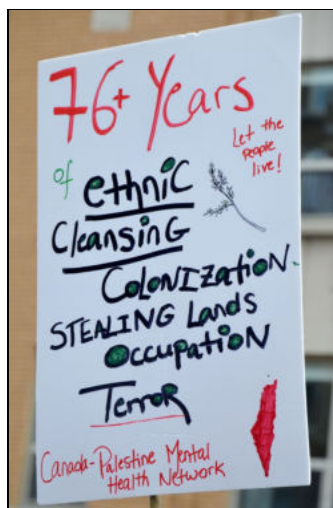 76+ Years
Let the
People
live!
of ethnic
Cleansing
COLONIZATION.
STEALING Lands
OccupatioN
TerroR
Canada-Palestine Mental
Health Network